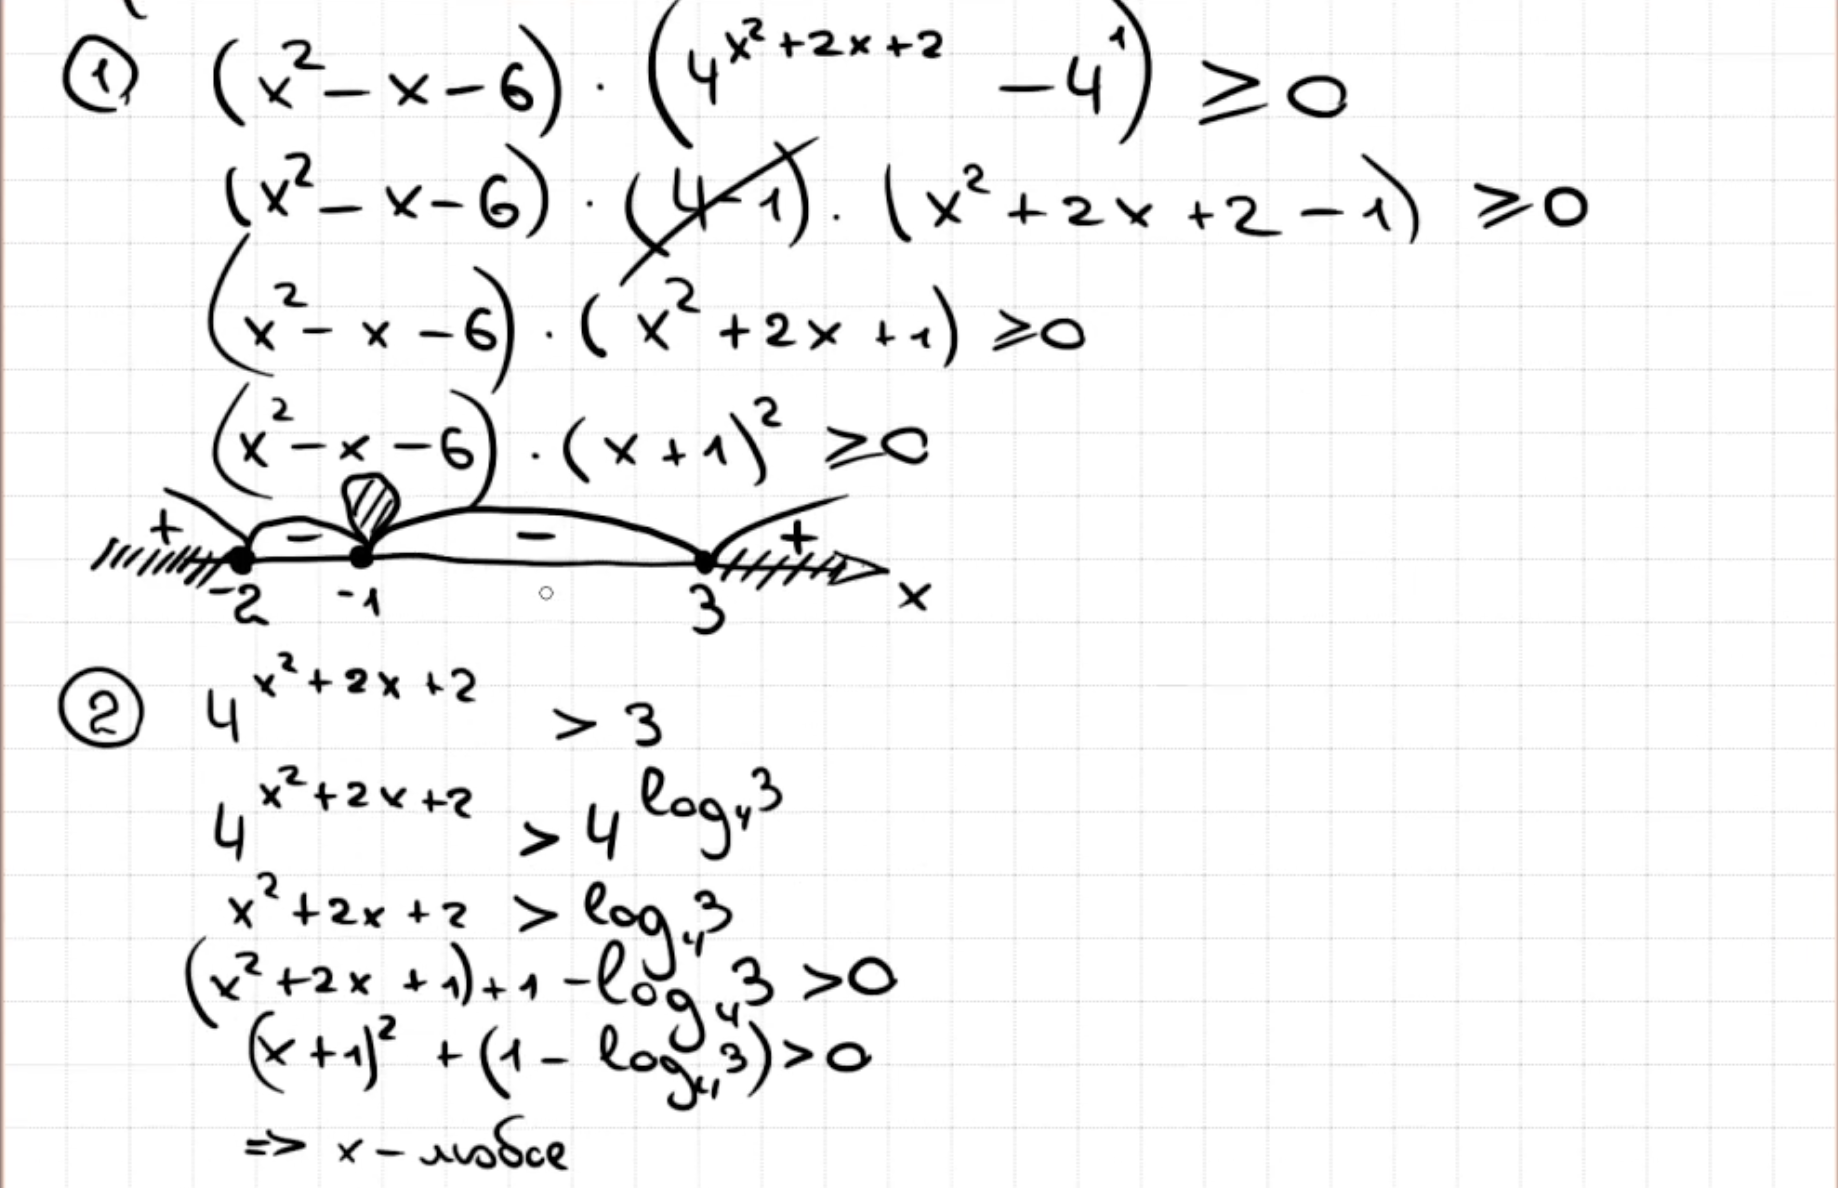 ① (x² – x – 6) · (4^(x²+2x+2) – 4¹) ≥ 0
(x² – x – 6) · (4 – 1) · (x² + 2x + 2 – 1) ≥ 0
(x² – x – 6) · (x² + 2x + 1) ≥ 0
(x² – x – 6) · (x + 1)² ≥ 0
+ – – +
-2 -1 3 x
② 4^(x²+2x+2) > 3
4^(x²+2x+2) > 4^(log₄3)
x² + 2x + 2 > log₄3
(x² + 2x + 1) + 1 – log₄3 > 0
(x + 1)² + (1 – log₄3) > 0
=> x – любое